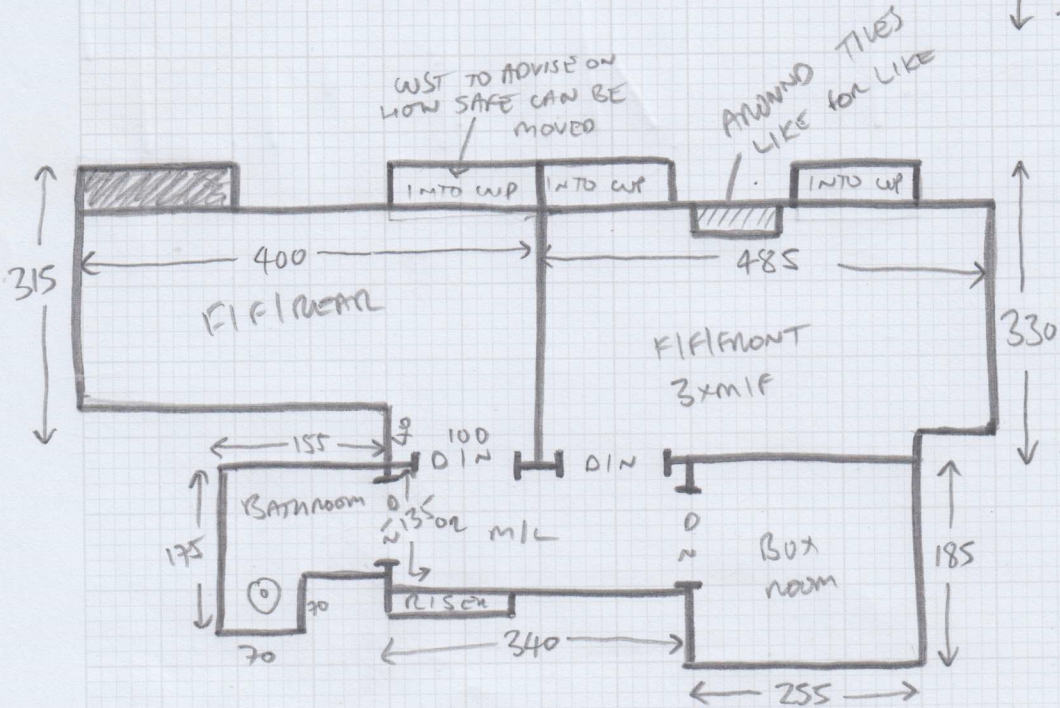 CUST TO ADVISE ON
HOW SAFE CAN BE
MOVED
AROUND TILES
LIKE FOR LIKE
INTO CUP
INTO CUP
INTO CUP
315
400
485
F/F/REAR
F/F/FRONT
3xM/F
330
155
100
D/N
D/N
BATHROOM
D/N
135
M/L
D/N
BOX
ROOM
175
185
70
RISER
70
340
255